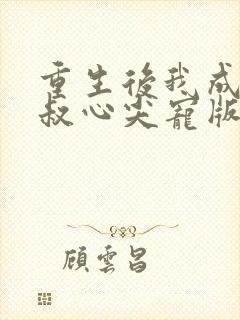 重生後我成
叔心尖寵版
顧雲昌